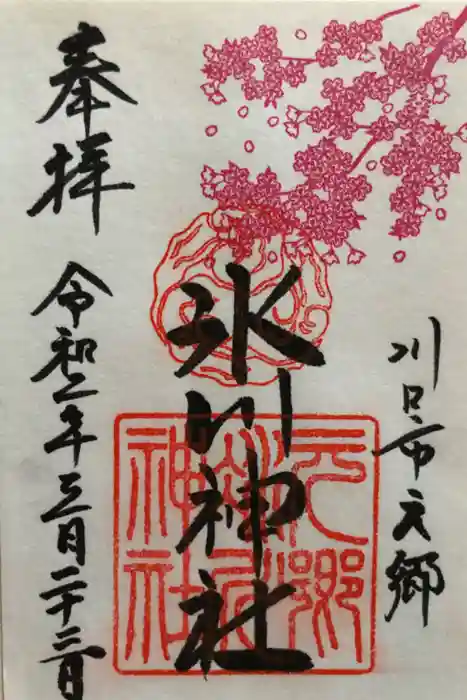 川口市元郷
氷川神社
奉拝
令和二年三月二十二日
元郷
氷川
神社